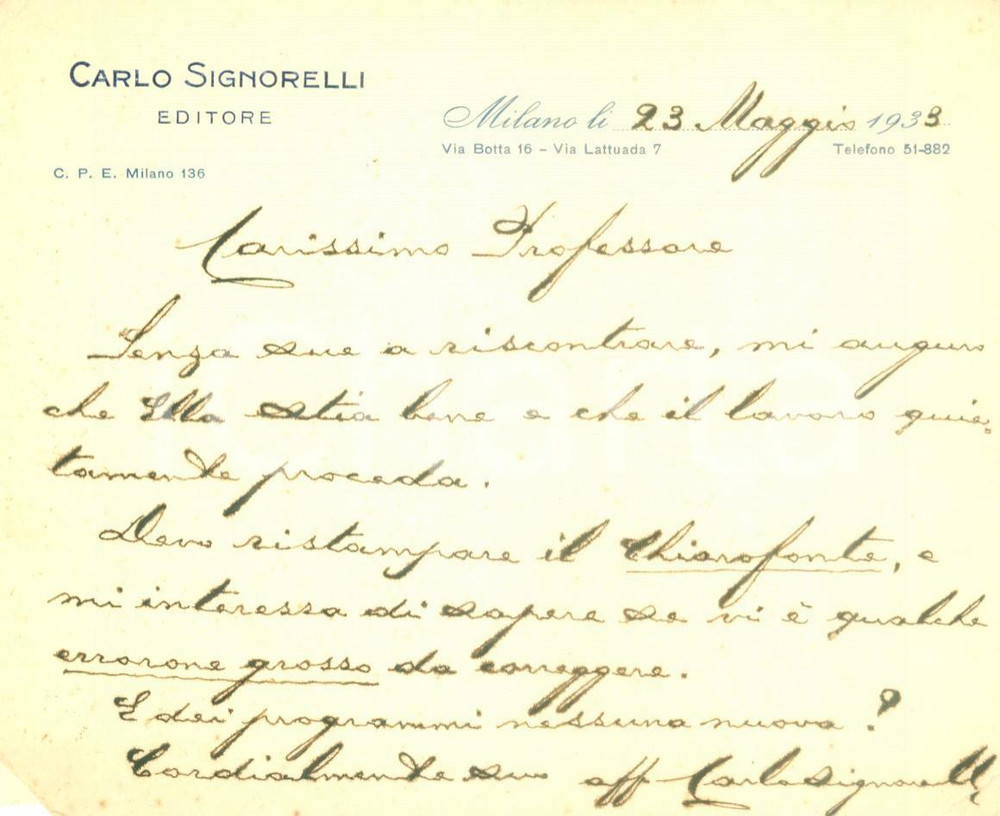 CARLO SIGNORELLI
EDITORE
Milano li 23 Maggio 1933
Via Botta 16 – Via Lattuada 7 Telefono 51-882
C. P. E. Milano 136
Carissimo Professore
Senza sue a riscontrare, mi auguro
che Ella stia bene e che il lavoro quie-
tamente proceda.
Devo ristampare il Chiarofonte, e
mi interessa di sapere se vi è qualche
errorone grosso da correggere.
E dei programmi nessuna nuova?
Cordialmente suo aff Carlo Signorelli